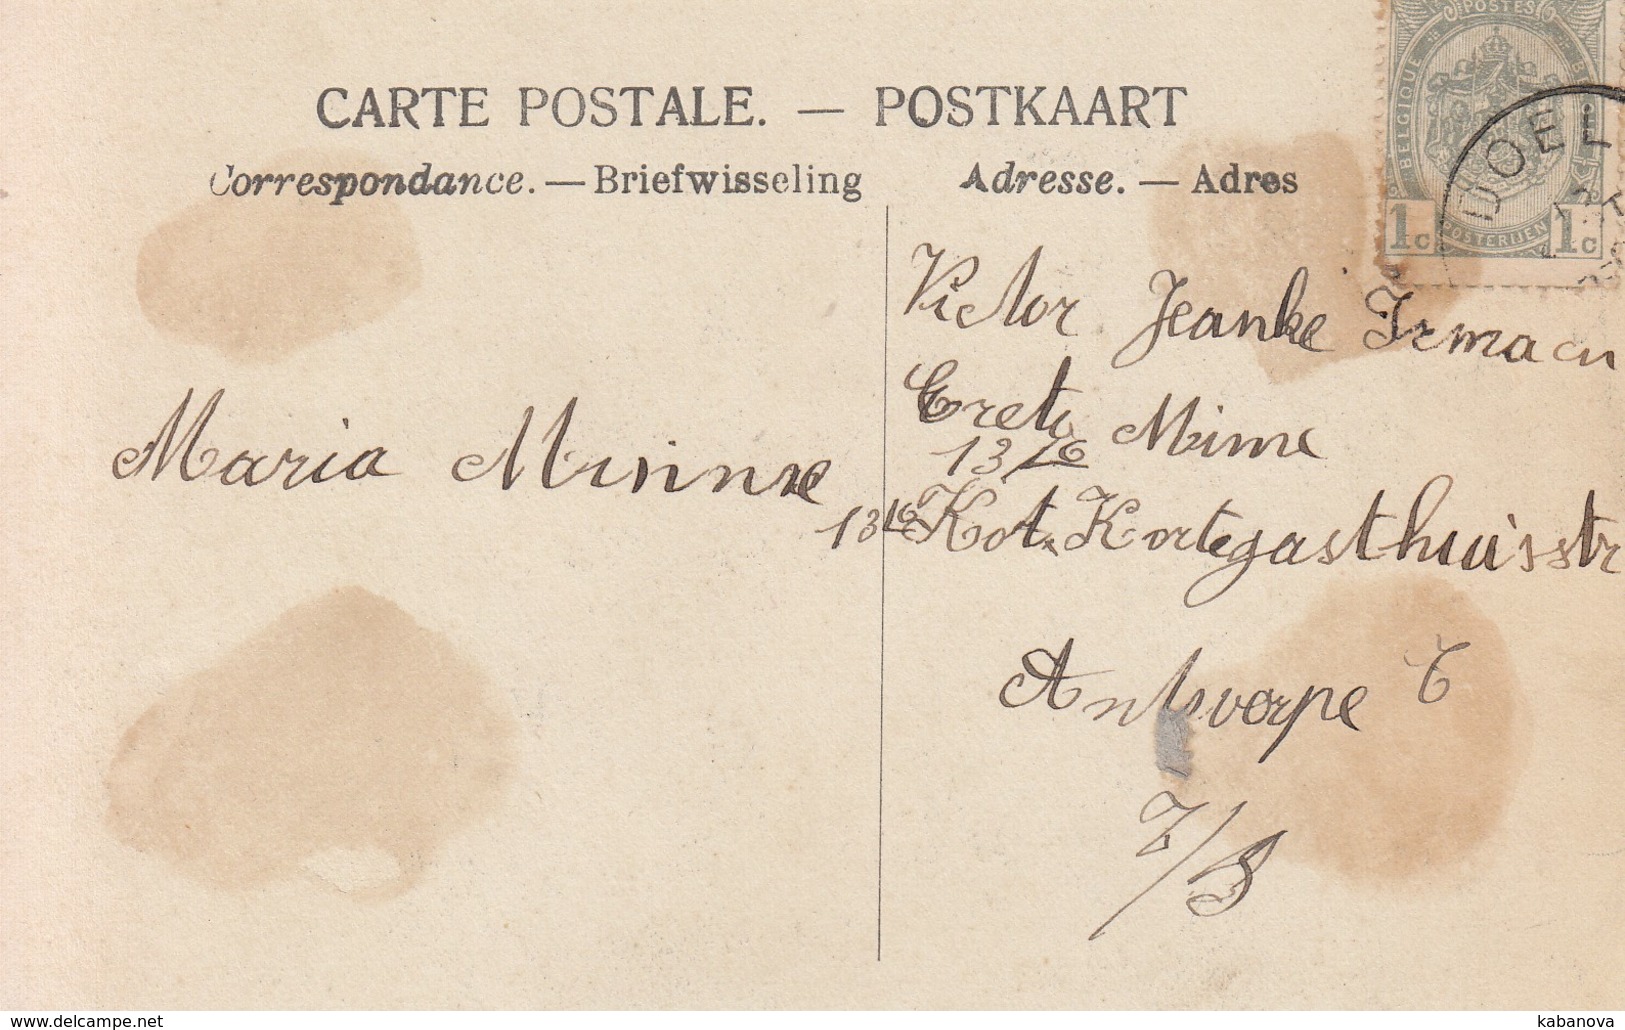 CARTE POSTALE. — POSTKAART
Correspondance. — Briefwisseling
Adresse. — Adres
POSTES
BELGIQUE
POSTERIJEN
1c 1c
DOEL
Maria Minne
Victor Jeanke Irma en
Mime
13
13
Kortegasthuisstr
Antwerpe
www.delcampe.net
kabanova